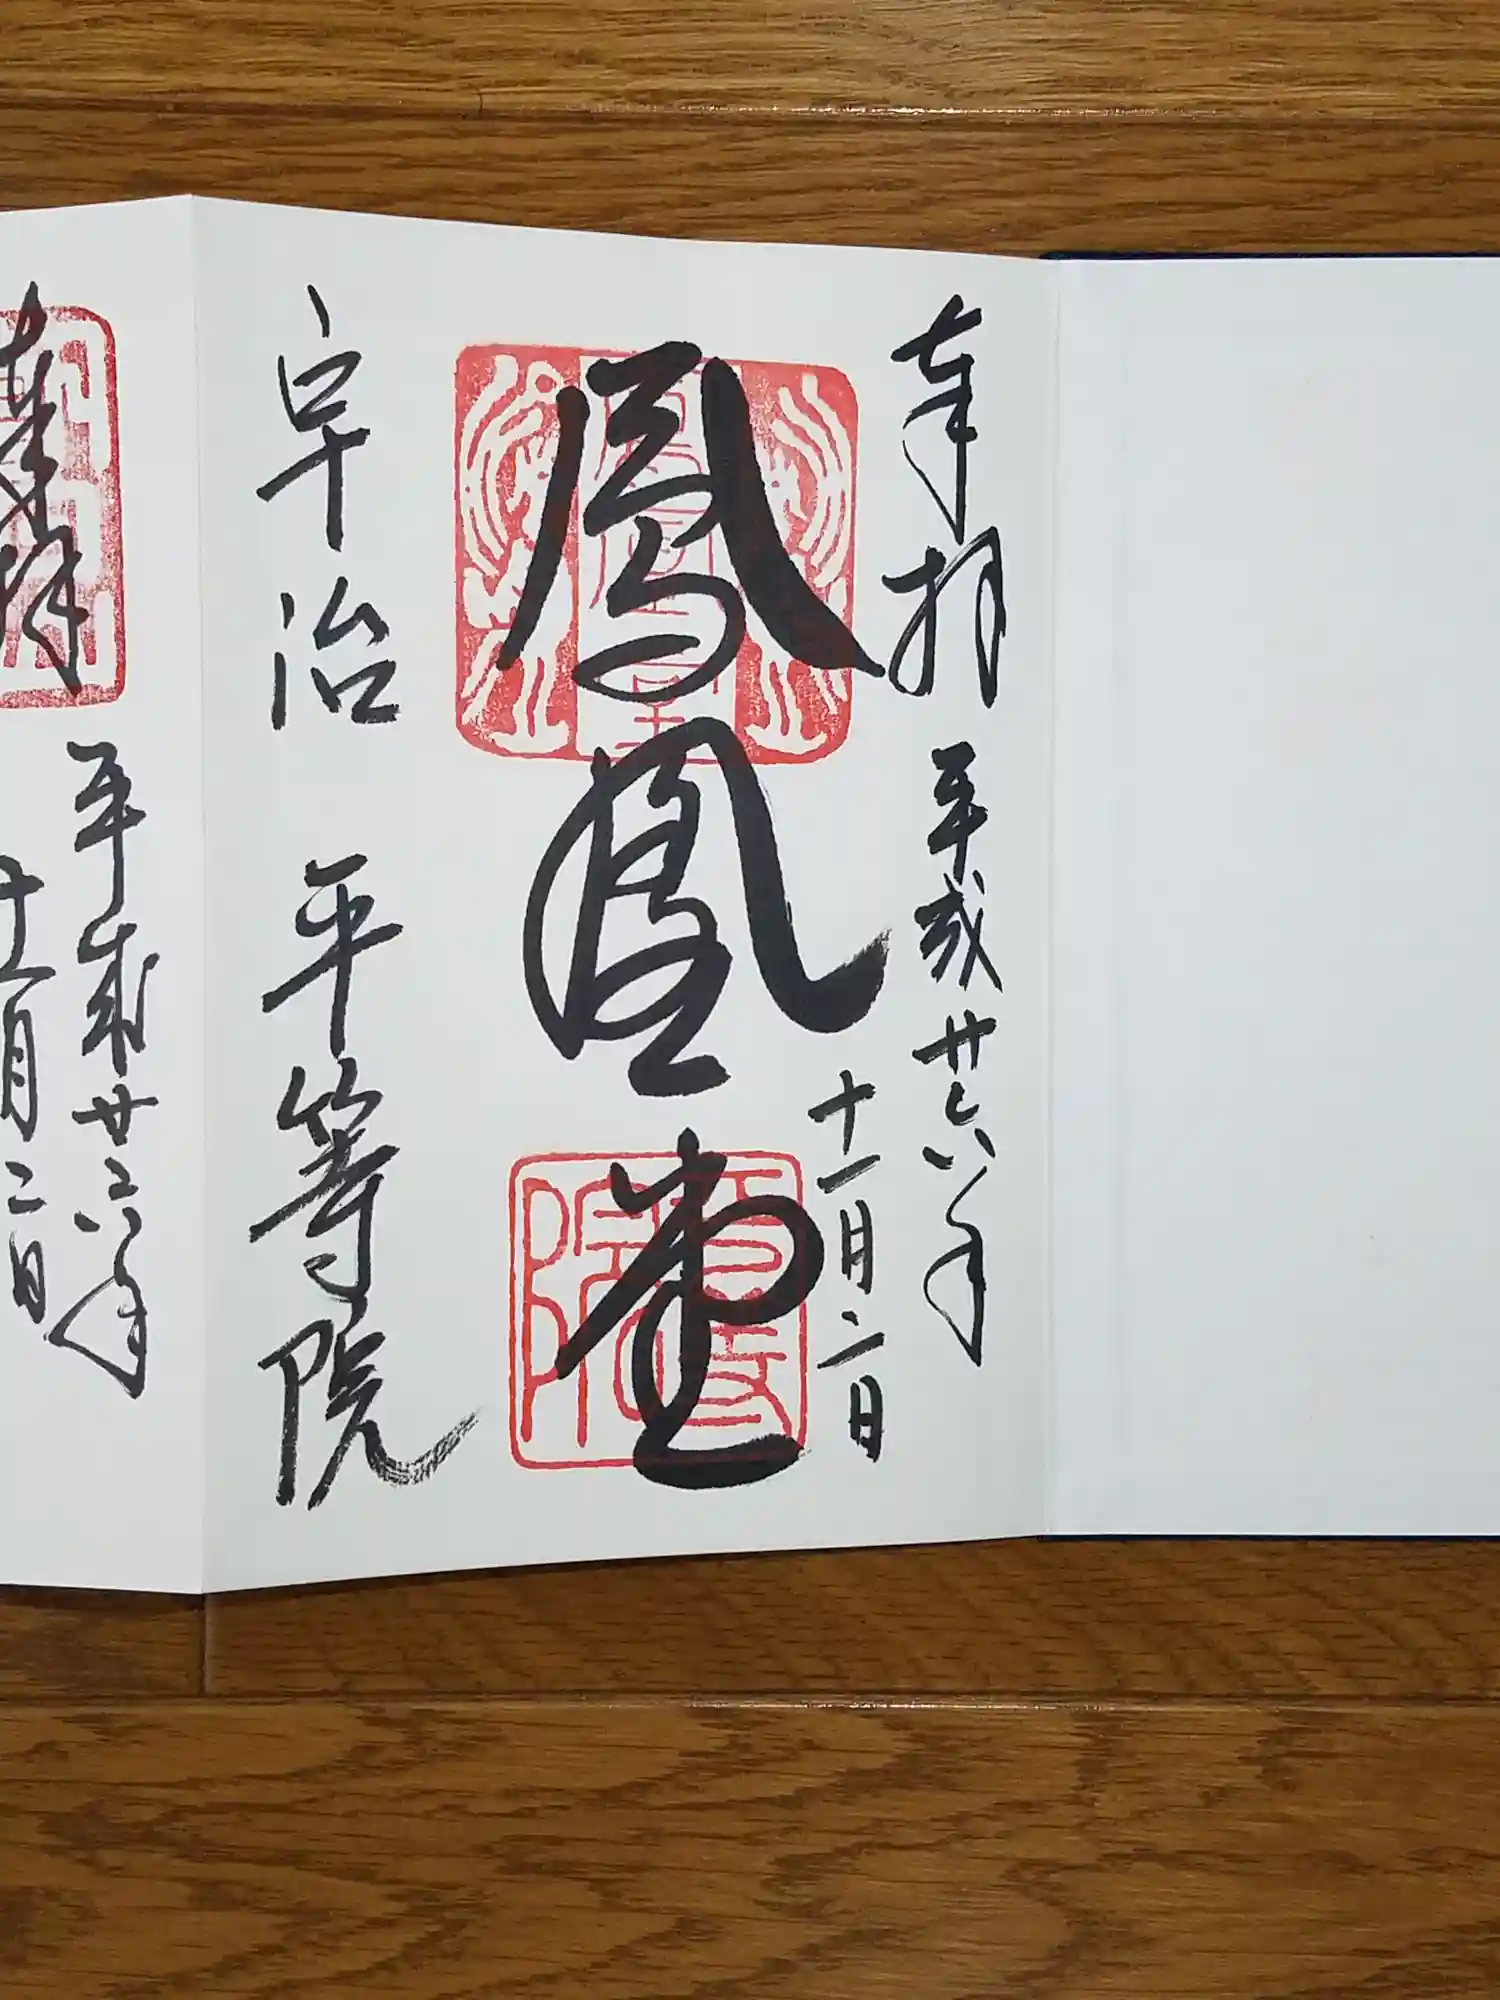 奉拝
平成廿六年
十一月二日
鳳凰堂
宇治 平等院
奉拝
平成廿六年
十一月二日